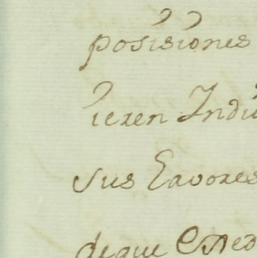 posisiones
ieren Indi
sus Favores
deque